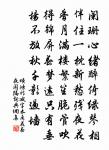 闌珊心緒醉倚綠琴相
伴住一枕新愁殘夜花
香月滿樓繁笙脆管吹
得錦屏春夢遠只有垂
楊不放秋千影過牆
項鴻祚減字木蘭花春
夜聞隔院歌吹